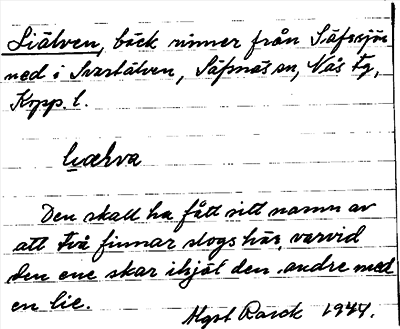 Liälven, bäck rinner från Säfssjön
ned i Svartälven, Säfsnäs sn, Nås tg,
Kopp. l.
Den skall ha fått sitt namn av
att två finnar slogs här, varvid
den ene skar ihjäl den andre med
en lie.
Algot Rarck 1944.